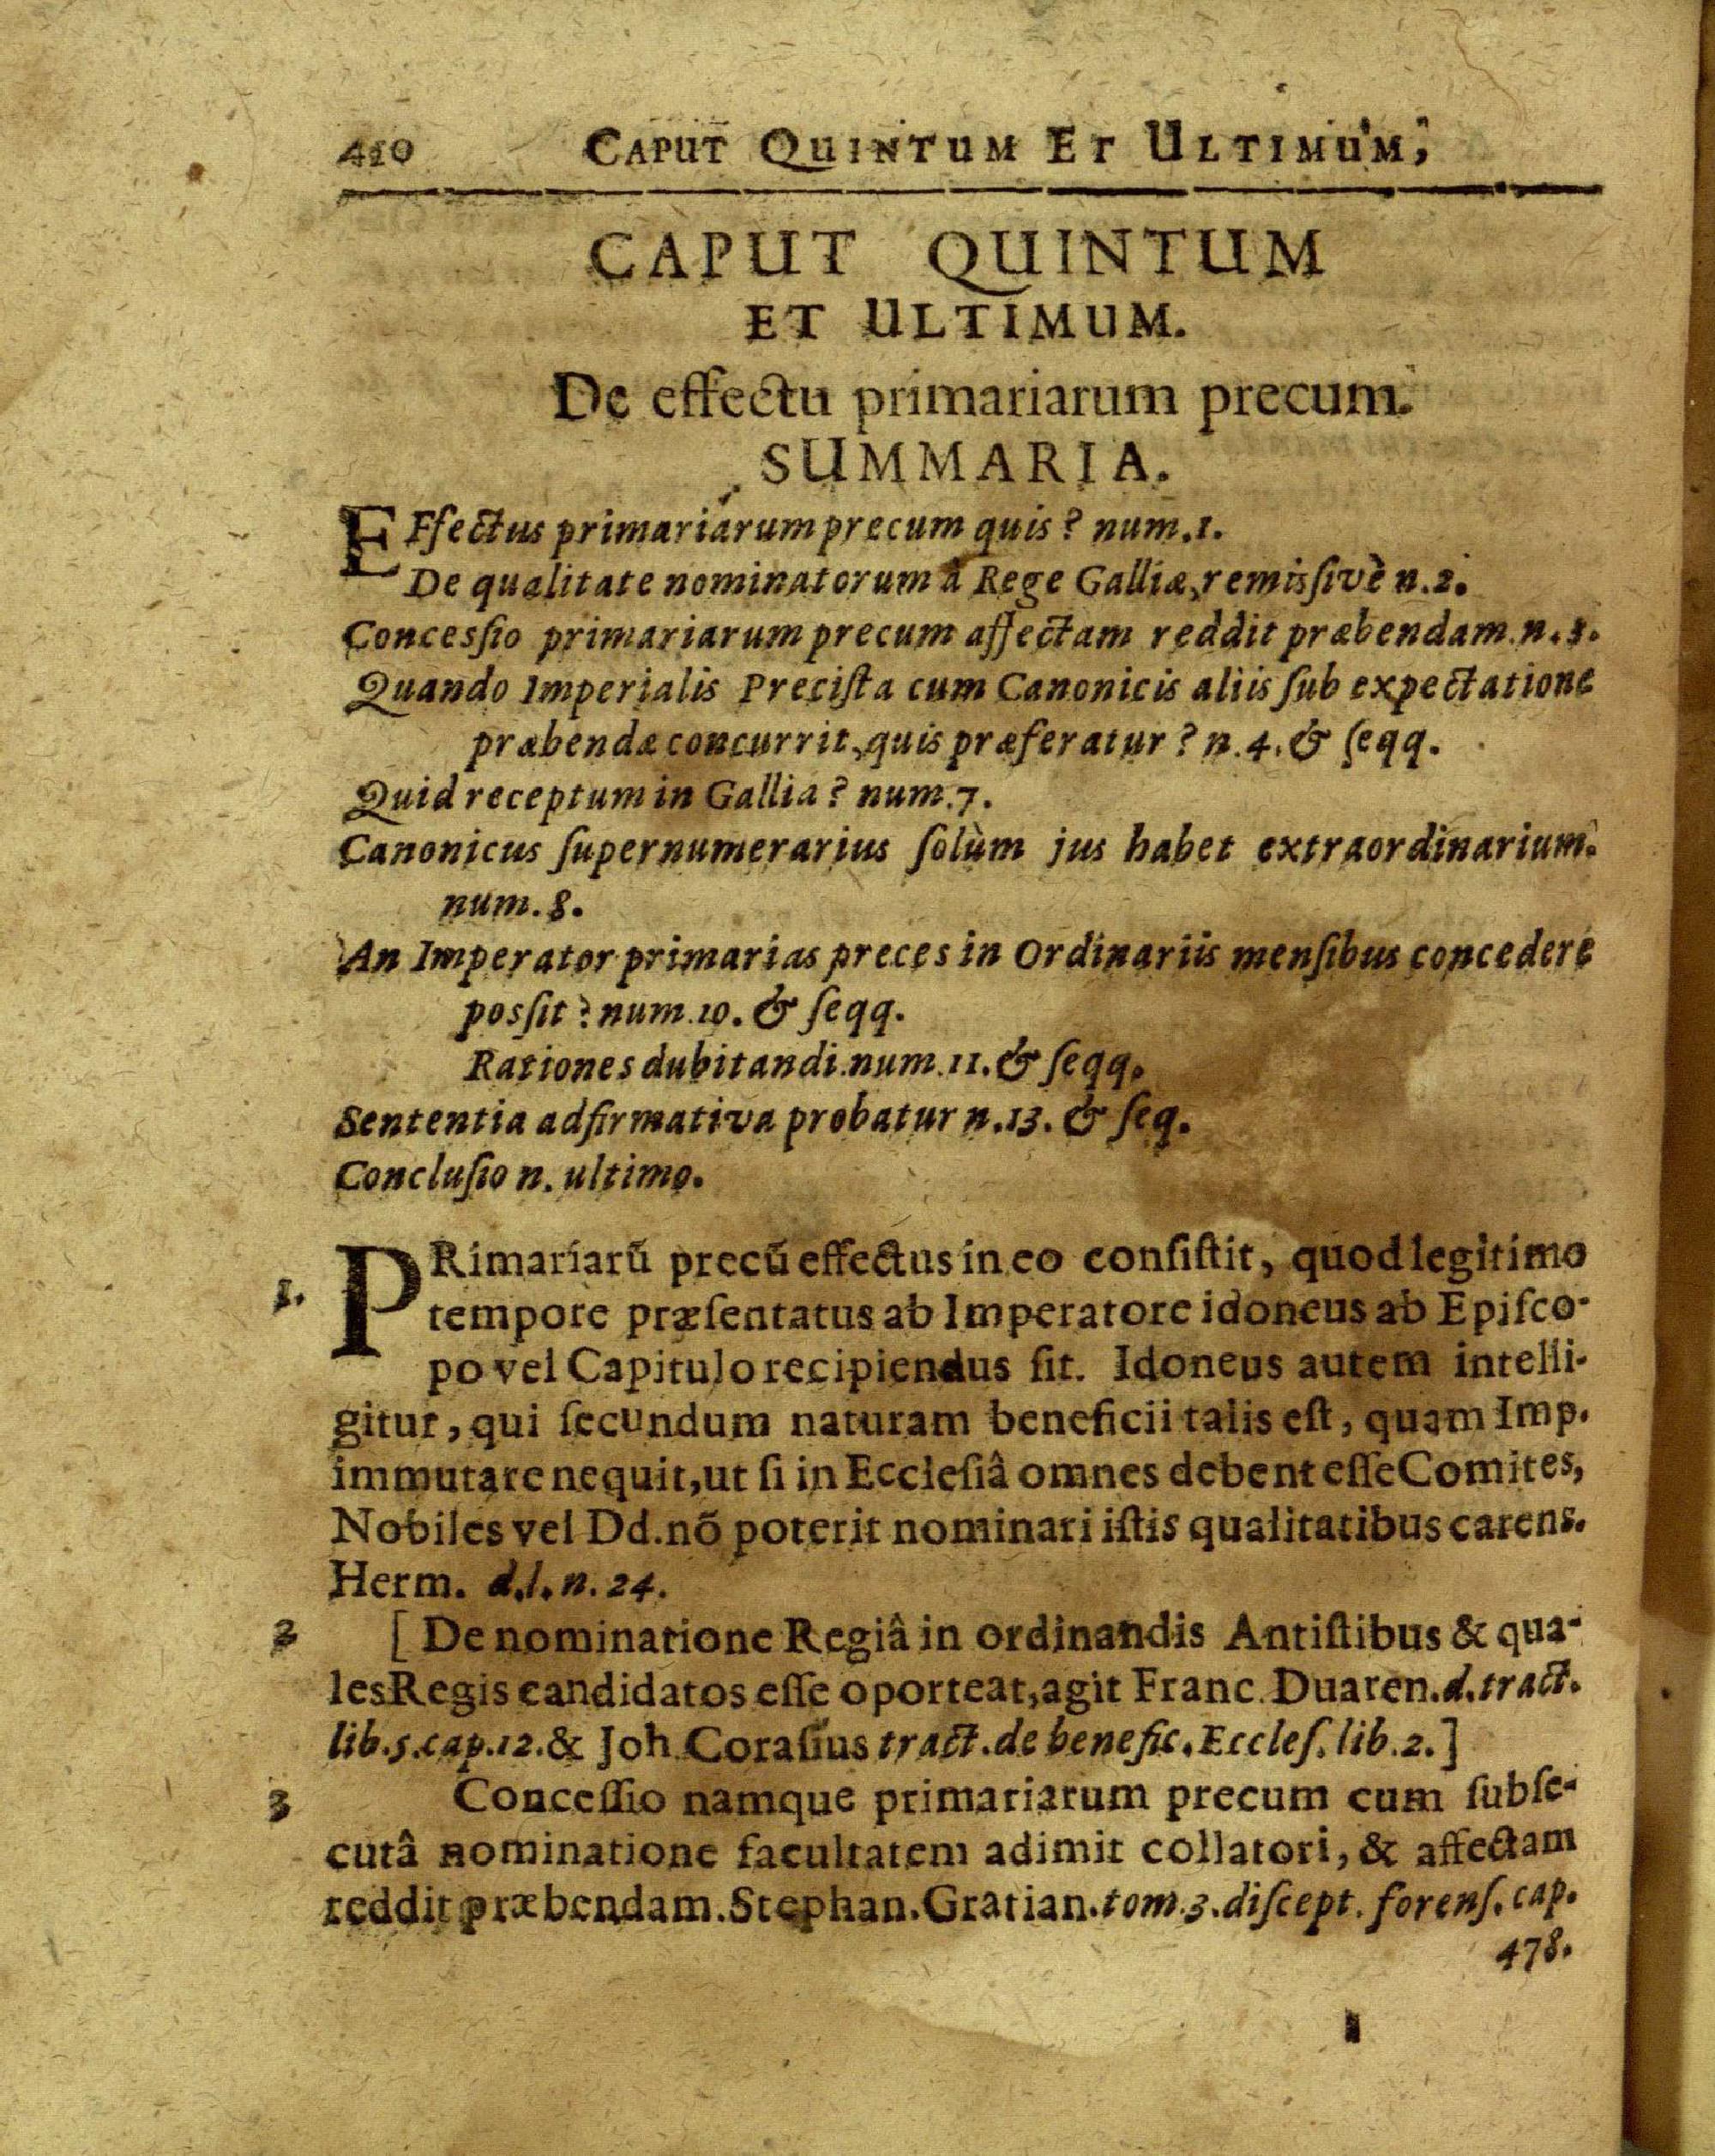 410 CAPUT QUINTUM ET ULTIMUM,
CAPUT QUINTUM
ET ULTIMUM.
De effectu primariarum precum.
SUMMARIA.
EFfectus primariarum precum quis? num.1.
De qualitate nominatorum â Rege Galliæ, remissivè n.2.
Concessio primariarum precum affectam reddit præbendam. n.3.
Quando Imperialis Precista cum Canonicis aliis sub expectatione
præbendæ concurrit, quis præferatur? n.4. & seqq.
Quid receptum in Gallia? num.7.
Canonicus supernumerarius solùm jus habet extraordinarium.
num. 8.
An Imperator primarias preces in Ordinariis mensibus concedere
possit? num.10. & seqq.
Rationes dubitandi num.11. & seqq.
Sententia adfirmativa probatur n.13. & seq.
Conclusio n. ultimo.
1. PRimariarũ precũ effectus in eo consistit, quod legitimo
tempore præsentatus ab Imperatore idoneus ab Episco-
po vel Capitulo recipiendus sit. Idoneus autem intelli-
gitur, qui secundum naturam beneficii talis est, quam Imp.
immutare nequit, ut si in Ecclesiâ omnes debent esse Comites,
Nobiles vel Dd. nõ poterit nominari istis qualitatibus carens.
Herm. d.l.n. 24.
2 [ De nominatione Regiâ in ordinandis Antistibus & qua-
les Regis candidatos esse oporteat, agit Franc. Duaren. d. tract.
lib.5.cap.12. & Joh. Corasius tract. de benefic. Eccles. lib.2.]
3 Concessio namque primariarum precum cum subse-
cutâ nominatione facultatem adimit collatori, & affectam
reddit præbendam. Stephan. Gratian. tom.3. discept. forens. cap.
478.